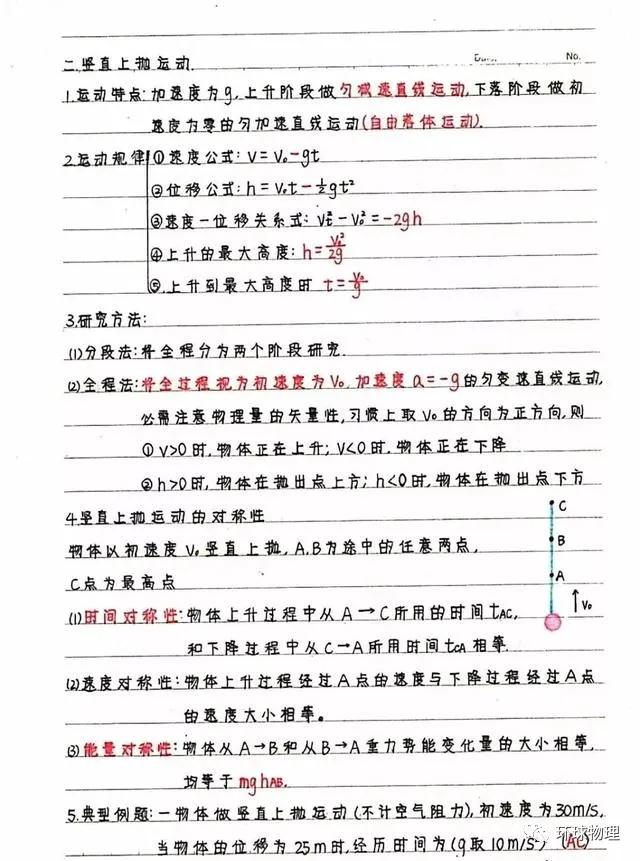 Date. No.
二.竖直上抛运动.
1.运动特点:加速度为g,上升阶段做匀减速直线运动,下落阶段做初
速度为零的匀加速直线运动(自由落体运动).
2.运动规律 ①速度公式: V=V₀-gt
②位移公式: h=V₀t-½gt²
③速度一位移关系式: Vt²-V₀²=-2gh
④上升的最大高度: h=V₀²/2g
⑤.上升到最大高度时 t=V₀/g
3.研究方法:
(1)分段法:将全程分为两个阶段研究.
(2)全程法:将全过程视为初速度为V₀,加速度a=-g的匀变速直线运动,
必需注意物理量的矢量性,习惯上取V₀的方向为正方向,则
①V>0时,物体正在上升;V<0时,物体正在下降
②h>0时,物体在抛出点上方;h<0时,物体在抛出点下方
4.竖直上抛运动的对称性
物体以初速度V₀竖直上抛,A,B为途中的任意两点,
C点为最高点
C
B
A
V₀
(1)时间对称性:物体上升过程中从A→C所用的时间tAC,
和下降过程中从C→A所用时间tCA相等.
(2)速度对称性:物体上升过程经过A点的速度与下降过程经过A点
的速度大小相等。
(3)能量对称性:物体从A→B和从B→A重力势能变化量的大小相等,
均等于mghAB.
5.典型例题:一物体做竖直上抛运动(不计空气阻力),初速度为30m/s,
当物体的位移为25m时,经历时间为(g取10m/s²) (AC)
环球物理